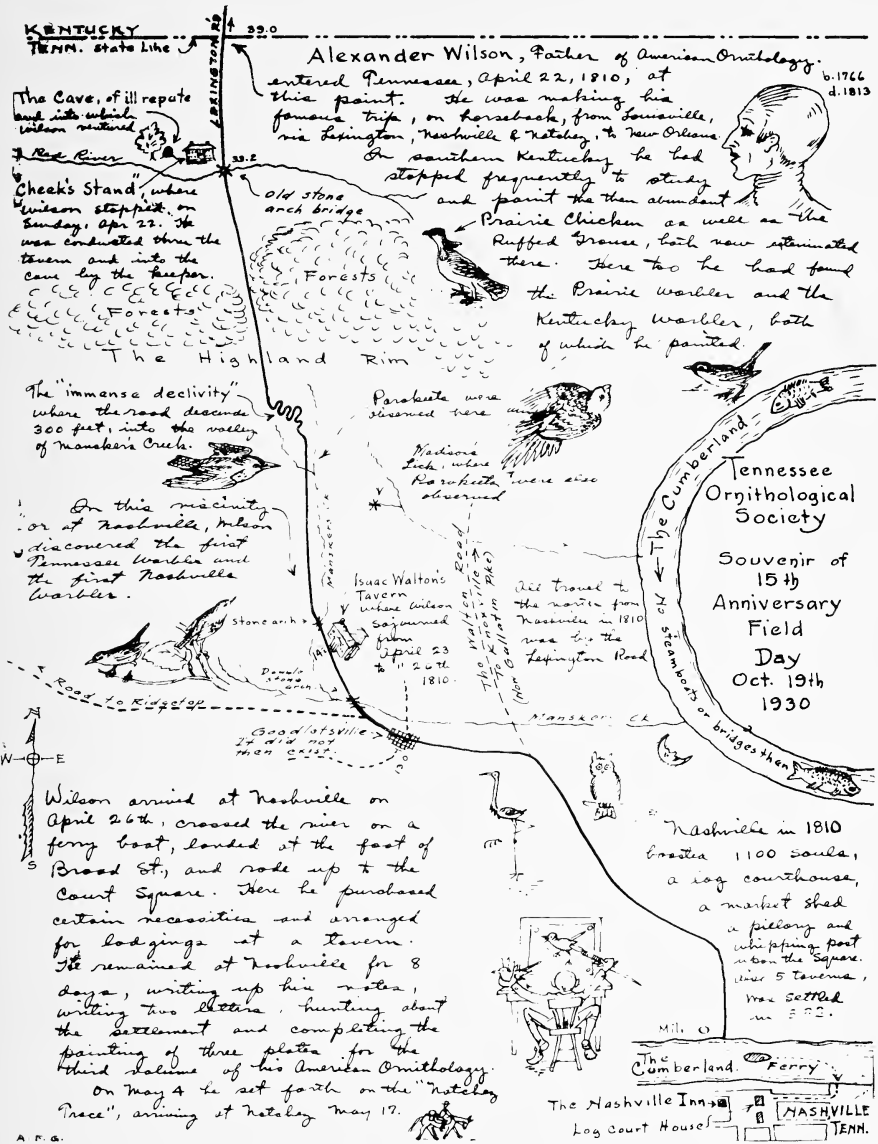 KENTUCKY
TENN. State Line
LEXINGTON R'D
39.0
Alexander Wilson, Father of American Ornithology.
b. 1766
d. 1813
entered Tennessee, April 22, 1810, at
this point. He was making his
famous trip, on horseback, from Louisville,
via Lexington, Nashville & Natchez, to New Orleans.
In southern Kentucky he had
stopped frequently to study
and paint the then abundant
Prairie Chicken as well as the
Ruffed Grouse, both now exterminated
there. Here too he had found
the Prairie Warbler and the
Kentucky Warbler, both
of which he painted.
The Cave, of ill repute
and into which
Wilson ventured
Red River
33.2
"Cheek's Stand", where
Wilson stopped on
Sunday, Apr 22. He
was conducted thru the
tavern and into the
cave by the keeper.
old stone
arch bridge
Forests
Forests
The Highland Rim
The "immense declivity"
where the road descends
300 feet, into the valley
of Mansker's Creek.
Parokeets were
observed here
Madison's
Lick, where
Parokeets were also
observed
In this viscinity
or at Nashville, Wilson
discovered the first
Tennessee Warbler and
the first Nashville
Warbler.
Mansker's Ck
Isaac Walton's
Tavern
where Wilson
sojourned
from
April 23
to " 26th
1810.
Stone arch
Double
stone
arch
The Walton Road
To Knoxville
(Now Gallatin Pike)
All travel to
the north from
Nashville in 1810
was by the
Lexington Road
Road to Ridgetop
Goodlettsville
It did not
then exist.
Mansker Ck
The Cumberland
No steamboats or bridges then
Tennessee
Ornithological
Society
Souvenir of
15th
Anniversary
Field
Day
Oct. 19th
1930
N
W E
S
Wilson arrived at Nashville on
April 26th, crossed the river on a
ferry boat, landed at the foot of
Broad St., and rode up to the
Court Square. Here he purchased
certain necessities and arranged
for lodgings at a tavern.
He remained at Nashville for 8
days, writing up his notes,
writing two letters, hunting about
the settlement and completing the
painting of three plates for the
third volume of his American Ornithology.
On May 4 he set forth on the "Natchez
Trace", arriving at Natchez May 17.
A. F. G.
Nashville in 1810
boasted 1100 souls,
a log courthouse,
a market shed
a pillory and
whipping post
upon the Square.
also 5 taverns,
was settled
in
Mile 0
The
Cumberland
Ferry
The Nashville Inn
Log Court House
NASHVILLE
TENN.